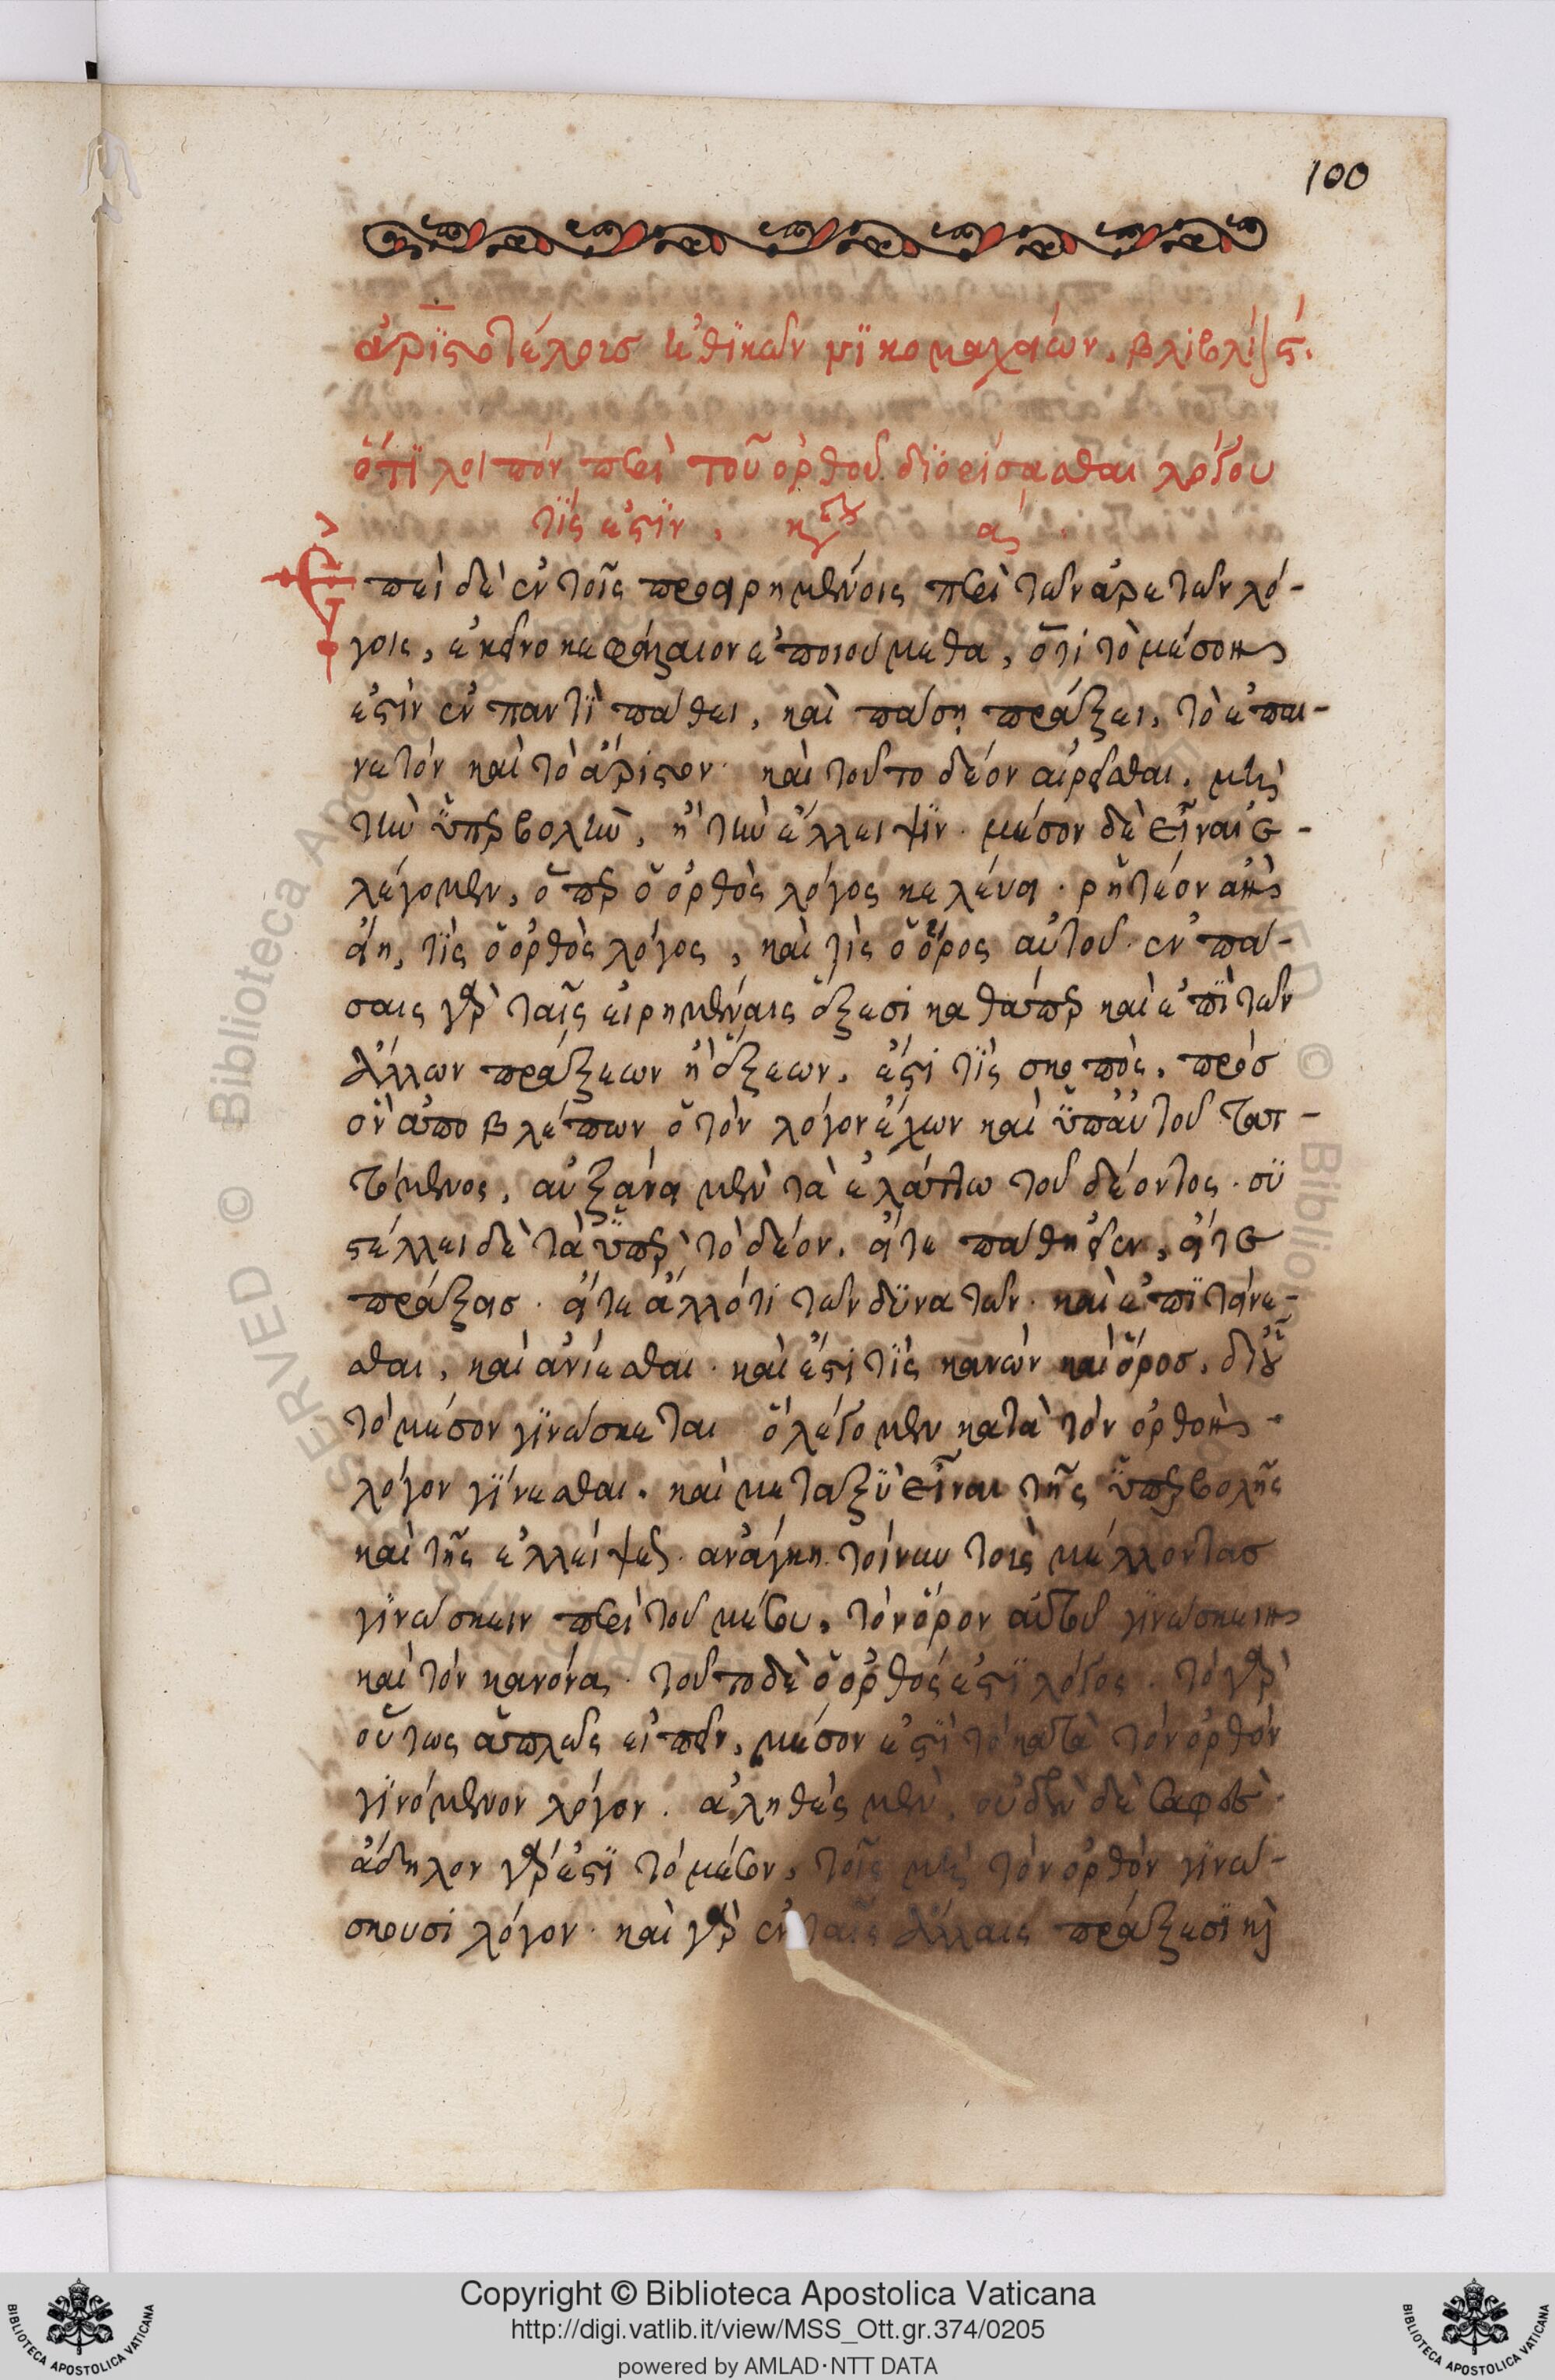 100
ἀριστοτέλους ἠθικῶν νικομαχείων, βιβλίον ϛ.
ὅτι λοιπόν περὶ τοῦ ὀρθοῦ διορίσασθαι λόγου
τίς ἐστίν, κεφ α
Ἐπεὶ δὲ ἐν τοῖς προειρημένοις περὶ τῶν ἀρετῶν λό-
γοις, ἐκεῖνο κεφάλαιον ἐποιούμεθα, ὅτι τὸ μέσον
ἐστὶν ἐν παντὶ πάθει, καὶ πάσῃ πράξει, τὸ ἐπαι-
νετόν καὶ τὸ ἄριστον· καὶ τοῦτο δέον αἱρεῖσθαι, μὴ
τὴν ὑπερβολὴν, ἢ τὴν ἔλλειψιν· μέσον δὲ εἶναι ἐ-
λέγομεν, ὅπερ ὁ ὀρθὸς λόγος κελεύει· ῥητέον ἂν
εἴη, τίς ὁ ὀρθὸς λόγος, καὶ τίς ὁ ὅρος αὐτοῦ· ἐν πά-
σαις γὰρ ταῖς εἰρημέναις ἕξεσι καθάπερ καὶ ἐπὶ τῶν
ἄλλων πράξεων ἢ ἕξεων, ἔστι τίς σκοπὸς, πρὸσ
ὃν ἀποβλέπων ὁ τὸν λόγον ἔχων καὶ ὑπ' αὐτοῦ ταττ-
τόμενος, αὐξάνει μὲν τὰ ἐλάττω τοῦ δέοντος· συ
στέλλει δὲ τὰ ὑπὲρ τὸ δέον, εἴτε πάθη εἶεν, εἴτε
πράξεισ· εἴτε ἄλλό τι τῶν δυνατῶν καὶ ἐπιτείνε-
σθαι, καὶ ἀνίεσθαι· καὶ ἔστι τίς κανὼν καὶ ὅροσ, δι' οὗ
τὸ μέσον γινώσκεται ὃ λέγομεν κατὰ τὸν ὀρθὸν
λόγον γίνεσθαι· καὶ μεταξὺ εἶναι τῆς ὑπερβολῆς
καὶ τῆς ἐλλείψεως· ἀνάγκη τοίνυν τοὺς μέλλοντασ
γινώσκειν περὶ τοῦ μέσου, τὸν ὅρον αὐτοῦ γινώσκειν
καὶ τὸν κανόνα· τοῦτο δὲ ὁ ὀρθός ἐστι λόγος· τὸ γὰρ
οὕτως ἁπλῶς εἰπεῖν, μέσον ἐστὶ τὸ κατὰ τὸν ὀρθὸν
γινόμενον λόγον· ἀληθὲς μὲν, οὐδὲν δὲ σαφὲς·
ἄδηλον γάρ ἐστι τὸ μέσον, τοῖς μὴ τὸν ὀρθὸν γινώ-
σκουσι λόγον· καὶ γὰρ ἐν ταῖς ἄλλαις πράξεσι καὶ
© Biblioteca Apostolica
Copyright © Biblioteca Apostolica Vaticana
http://digi.vatlib.it/view/MSS_Ott.gr.374/0205
powered by AMLAD·NTT DATA
BIBLIOTECA APOSTOLICA VATICANA
BIBLIOTECA APOSTOLICA VATICANA